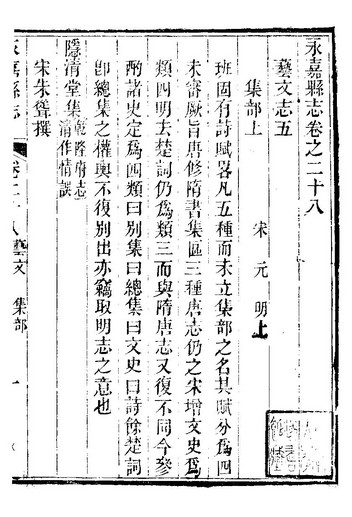 永嘉縣志卷之二十八
藝文志五
集部上 宋 元 明上
班固有詩賦畧凡五種而未立集部之名其賦分為四
未審厥旨唐修隋書集區三種唐志仍之宋增文史為
類四明去楚詞仍為類三而與隋唐志又復不同今參
酌諸史定為四類曰别集曰總集曰文史曰詩餘楚詞
卽總集之權輿不復别出亦竊取明志之意也
隱清堂集乾隆府志清作情誤
宋朱聳撰
永嘉縣志 卷二十八 藝文 集部 一